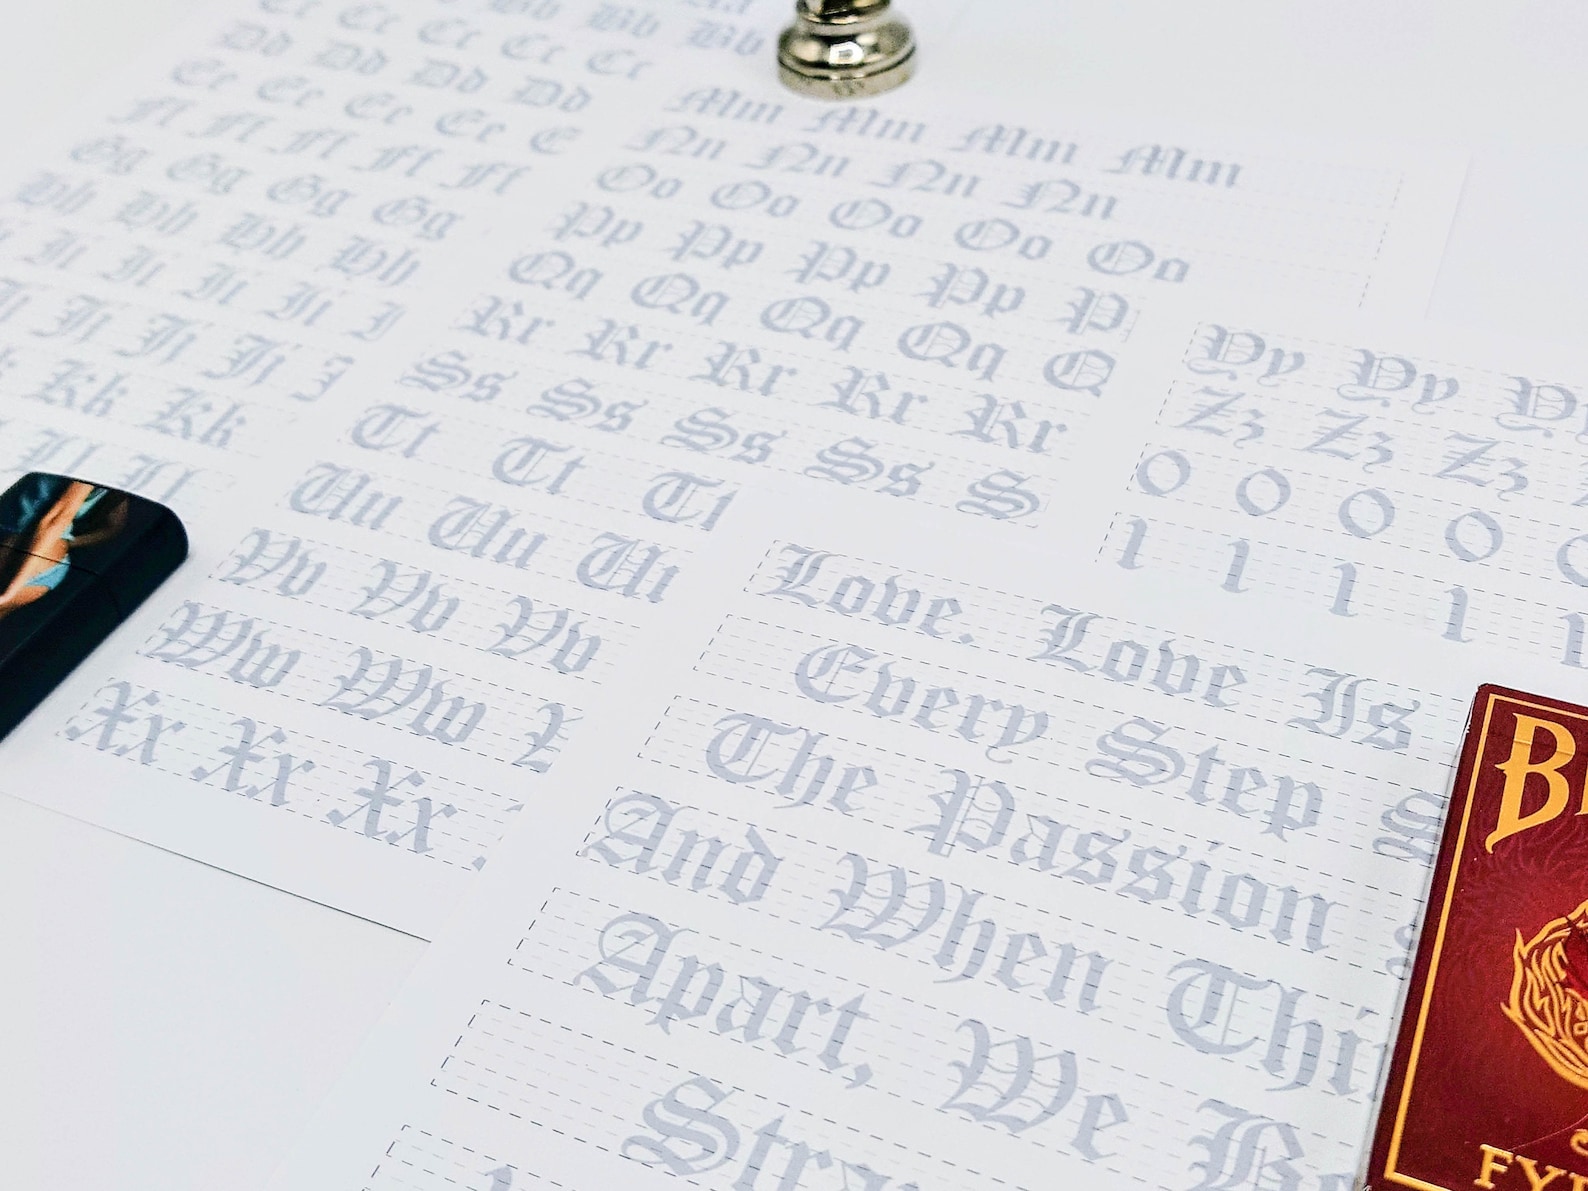 Bb Bb Bb
Cc Cc Cc Cc Cc
Dd Dd Dd Dd
Ee Ee Ee Ee E
Ff Ff Ff Ff Ff
Gg Gg Gg Gg
Hh Hh Hh Hh
Ii Ii Ii Ii I
Jj Jj Jj J
Kk Kk
Ll Ll
Mm Mm Mm Mm
Nn Nn Nn Nn
Oo Oo Oo Oo Oo
Pp Pp Pp Pp P
Qq Qq Qq Qq Q
Rr Rr Rr Rr Rr
Ss Ss Ss Ss S
Tt Tt Tt
Uu Uu Uu
Vv Vv Vv
Ww Ww
Xx Xx Xx
Yy Yy Yy
Zz Zz Zz
0 0 0 0
1 1 1 1 1
Love. Love Is
Every Step
The Passion
And When Thi
Apart, We Be
Stra
B
FY